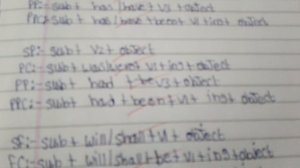 PP:- sub + has/have + V3 + object
PPC:- sub + has/have + been + V1 + ing + object
SP:- sub + V2 + object
PC:- sub + was/were V1 + ing + object
PP:- sub + had + V3 + object
PPC:- sub + had + been + V1 + ing + object
SF:- sub + will/shall + V1 + object
FC:- sub + will/shall + be + V1 + ing + object